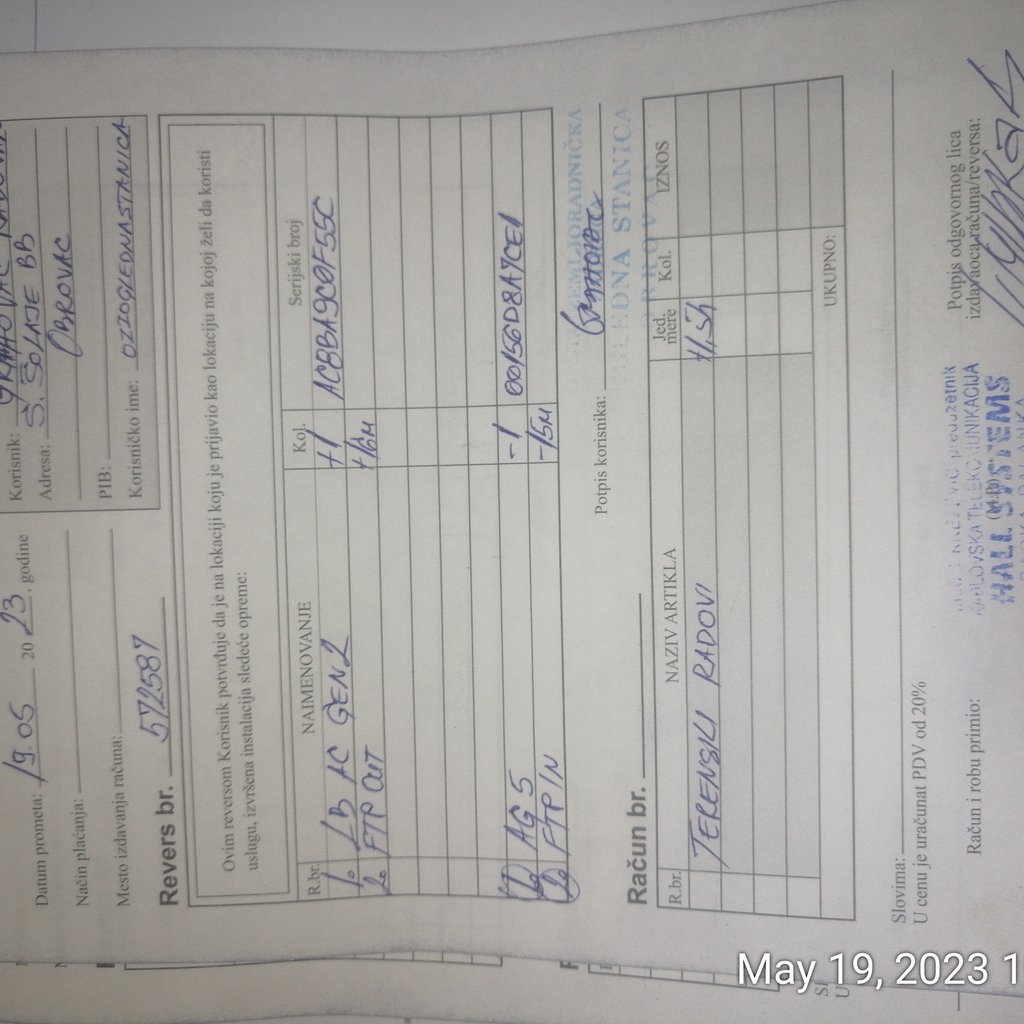 Datum prometa: 19.05 2023. godine
Način plaćanja:
Mesto izdavanja računa:
Korisnik:
Adresa: Š. ŠOLAJE BB
OBROVAC
PIB:
Korisničko ime: OZZOGLEDNASTANICA
Revers br. 572587
Ovim reversom Korisnik potvrđuje da je na lokaciji koju je prijavio kao lokaciju na kojoj želi da koristi
uslugu, izvršena instalacija sledeće opreme:
R.br. NAIMENOVANJE Kol. Serijski broj
1. LB AC GEN2 +1 AC8BA9C0F55C
2. FTP OUT +16M
1. AG 5 -1 00156D8A7CE1
2. FTP IN -15M
Potpis korisnika:
ZEMLJORADNIČKA
OGLEDNA STANICA
OBROVAC
Račun br.
R.br. NAZIV ARTIKLA Jed. mere Kol. IZNOS
TERENSKI RADOVI
UKUPNO:
Slovima:
U cenu je uračunat PDV od 20%
Račun i robu primio:
preduzetnik
KABLOVSKA TELEKOMUNIKACIJA
HALL SYSTEMS
(M.P.)
Potpis odgovornog lica
izdavaoca računa/reversa:
May 19, 2023 1